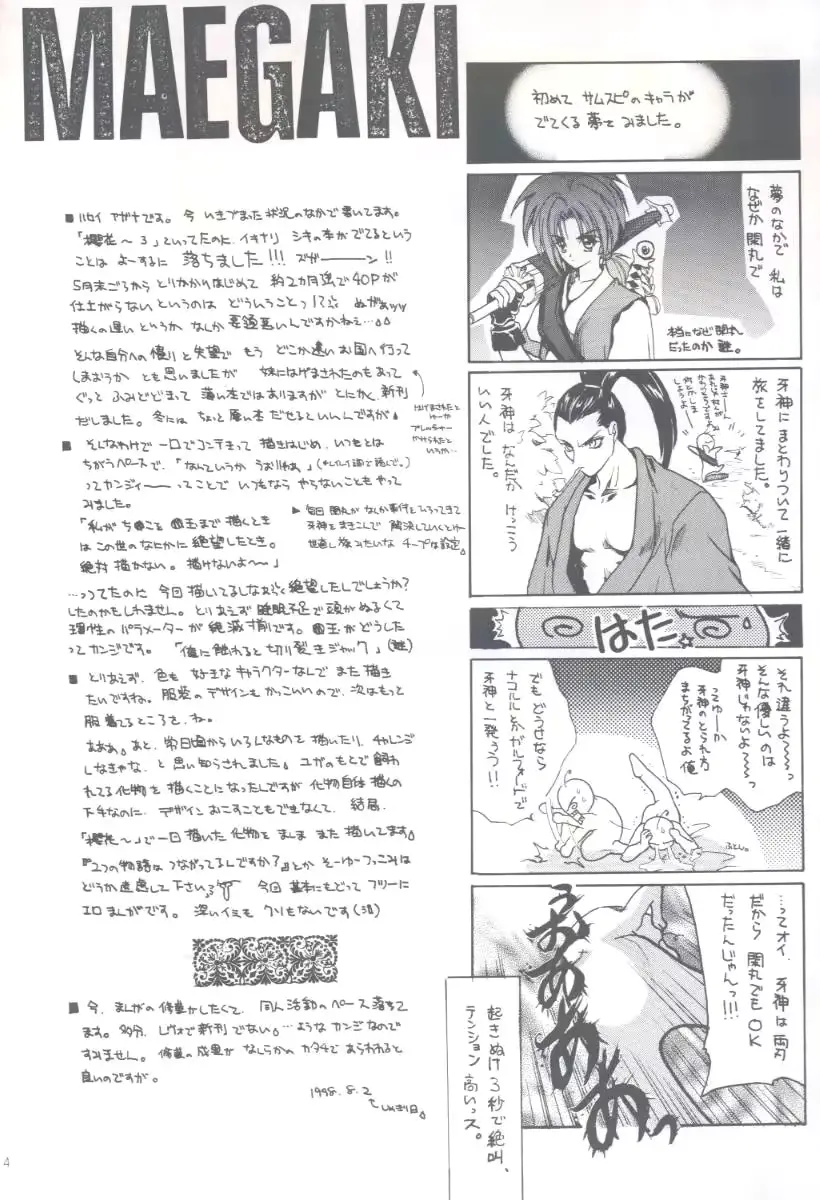 MAEGAKI
■ ハセイ アガナです。今 いきづまった状況のなかで書いてます。
「櫻花～3」といってたのに、イキナリ シキの本がでてるという
ことは よーするに 落ちました!!! ズガーーーン!!
5月末ごろから とりかかりはじめて 約2カ月強で40Pが
仕上がらないというのは どういうことっ!?
描くの遅い どうか なんか 要領悪いんですかねぇ…
そんな自分への憤りと失望で もう どこか遠いお国へ行って
しまおうか とも思いましたが 妹にはげまされたのもあって
ぐっと ふみとどまって 薄い本ではありますが とにかく、新刊
だしました。冬には ちょっと厚い本 だせるといいんですが
はげまされたと
ゆーか
プレッシャー
かけられたと
いうか…
■ そんなわけで 一口でコンテきって 描きはじめ、いつもとは
ちがうペースで、
ってカンジィーーー ってことで いつもなら やらないこともやって
みました。
「私が ち●こと ●玉まで描くとき
はこの世のなにかに 絶望したとき。
絶対描かない。描けないよ～～」
…ってたのに 今回描いてるしなぁ 絶望したんでしょうか?
したのかもしれません。とりあえず 睡眠不足で頭がぬるくて
理性の パラメーターが 絶滅寸前です。●玉がどうした
ってカンジです。「俺に触れると切り裂きジャック」(謎)
▶ 毎回 閑丸が なんか事件をひろってきて
牙神をまきこんで 解決していくとゆー
世直し旅みたいな チープな設定。
■ とりあえず、色も 好きなキャラクターなんで また 描き
たいですね。服装のデザインも かっこいいので、次はもっと
服着てるところを、ね。
あああ。あと、常日頃からいろんなものを 描いたり、チャレンジ
しなきゃな、と 思い知らされました。ユガのもとで飼わ
れてる化物を 描くことになったんですが 化物自体 描くの
下手なのに、デザインおこすこともできなくて、結局、
「櫻花～」で一日描いた 化物を まんま また 描いてます。
『2つの物語は つながってるんですか?』とか そーゆーつっこみは
どうか 遠慮して 下さい 今回 基本にもどって フツーに
エロまんがです。深いイミも クソもないです(泣)
■ 今、まんがの修業がしたくて、同人活動のペース 落ちて
ます。多分、レヴォで新刊でない。…ようなカンジなので
すみません。修業の成果が なんらかの カタチで あらわれると
良いのですが。
1998.8.2
しめきり日。
初めて サムスピのキャラが
でてくる 夢を みました。
夢のなかで 私は
なぜか 閑丸で
本当になぜ 閑丸
だったのか 謎。
牙神に まとわりついて 一緒に
旅をしてました。
牙神は なんだか けっこう
いい人でした。
はた☆
それ違うよ～～～っ
そんな優しいのは
牙神じゃないよ～～っ
ってゆーか
牙神のとられ方
まちがってるよ 俺
でも どうせなら
ナコルルとかガルフォードで
牙神と一発ろう!!
…ってオイ、牙神は両刃
だから 閑丸でもOK
だったんじゃんっ!!!
うおああああーっ
起きぬけ3秒で絶叫、
テンション 高いっス。
4